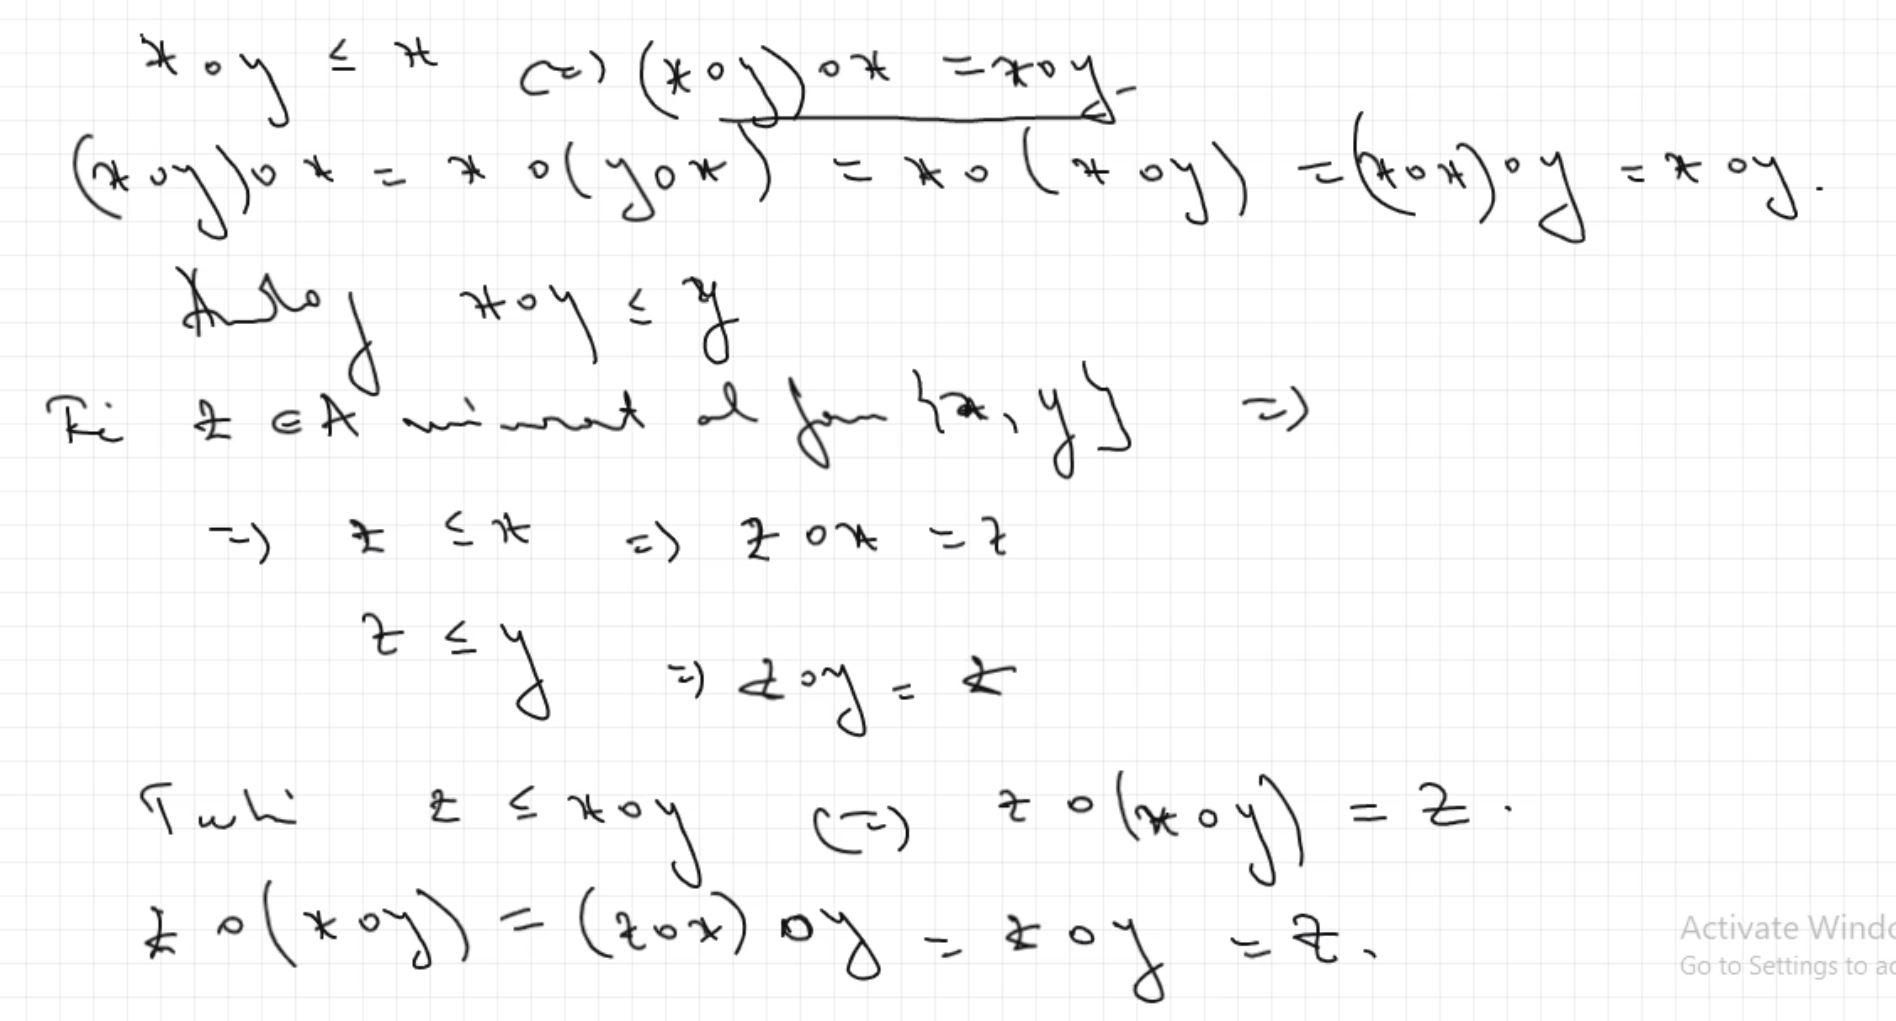 x ∘ y ≤ x (=) (x ∘ y) ∘ x = x ∘ y.
(x ∘ y) ∘ x = x ∘ (y ∘ x) = x ∘ (x ∘ y) = (x ∘ x) ∘ y = x ∘ y.
Analog x ∘ y ≤ y
Fie z ∈ A minorant al fam {x, y} =)
=) z ≤ x =) z ∘ x = z
z ≤ y =) z ∘ y = z
z ≤ x ∘ y (=) z ∘ (x ∘ y) = z.
z ∘ (x ∘ y) = (z ∘ x) ∘ y = z ∘ y = z.
Activate Windo
Go to Settings to ac